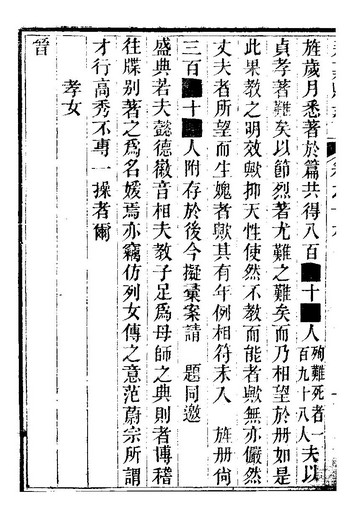 旌歲月悉著於篇共得八百■十■人殉難死者一百九十八人夫以
貞孝著難矣以節烈著尤難之難矣而乃相望於册如是
此果教之明效歟抑天性使然不教而能者歟無亦儼然
丈夫者所望而生媿者歟其有年例相符未入 旌册尚
三百■十■人附存於後今擬彙案請 題同邀
盛典若夫懿德徽音相夫教子足爲母師之典則者博稽
往牒别著之爲名媛焉亦竊仿列女傳之意范蔚宗所謂
才行高秀不專一操者爾
孝女
晉